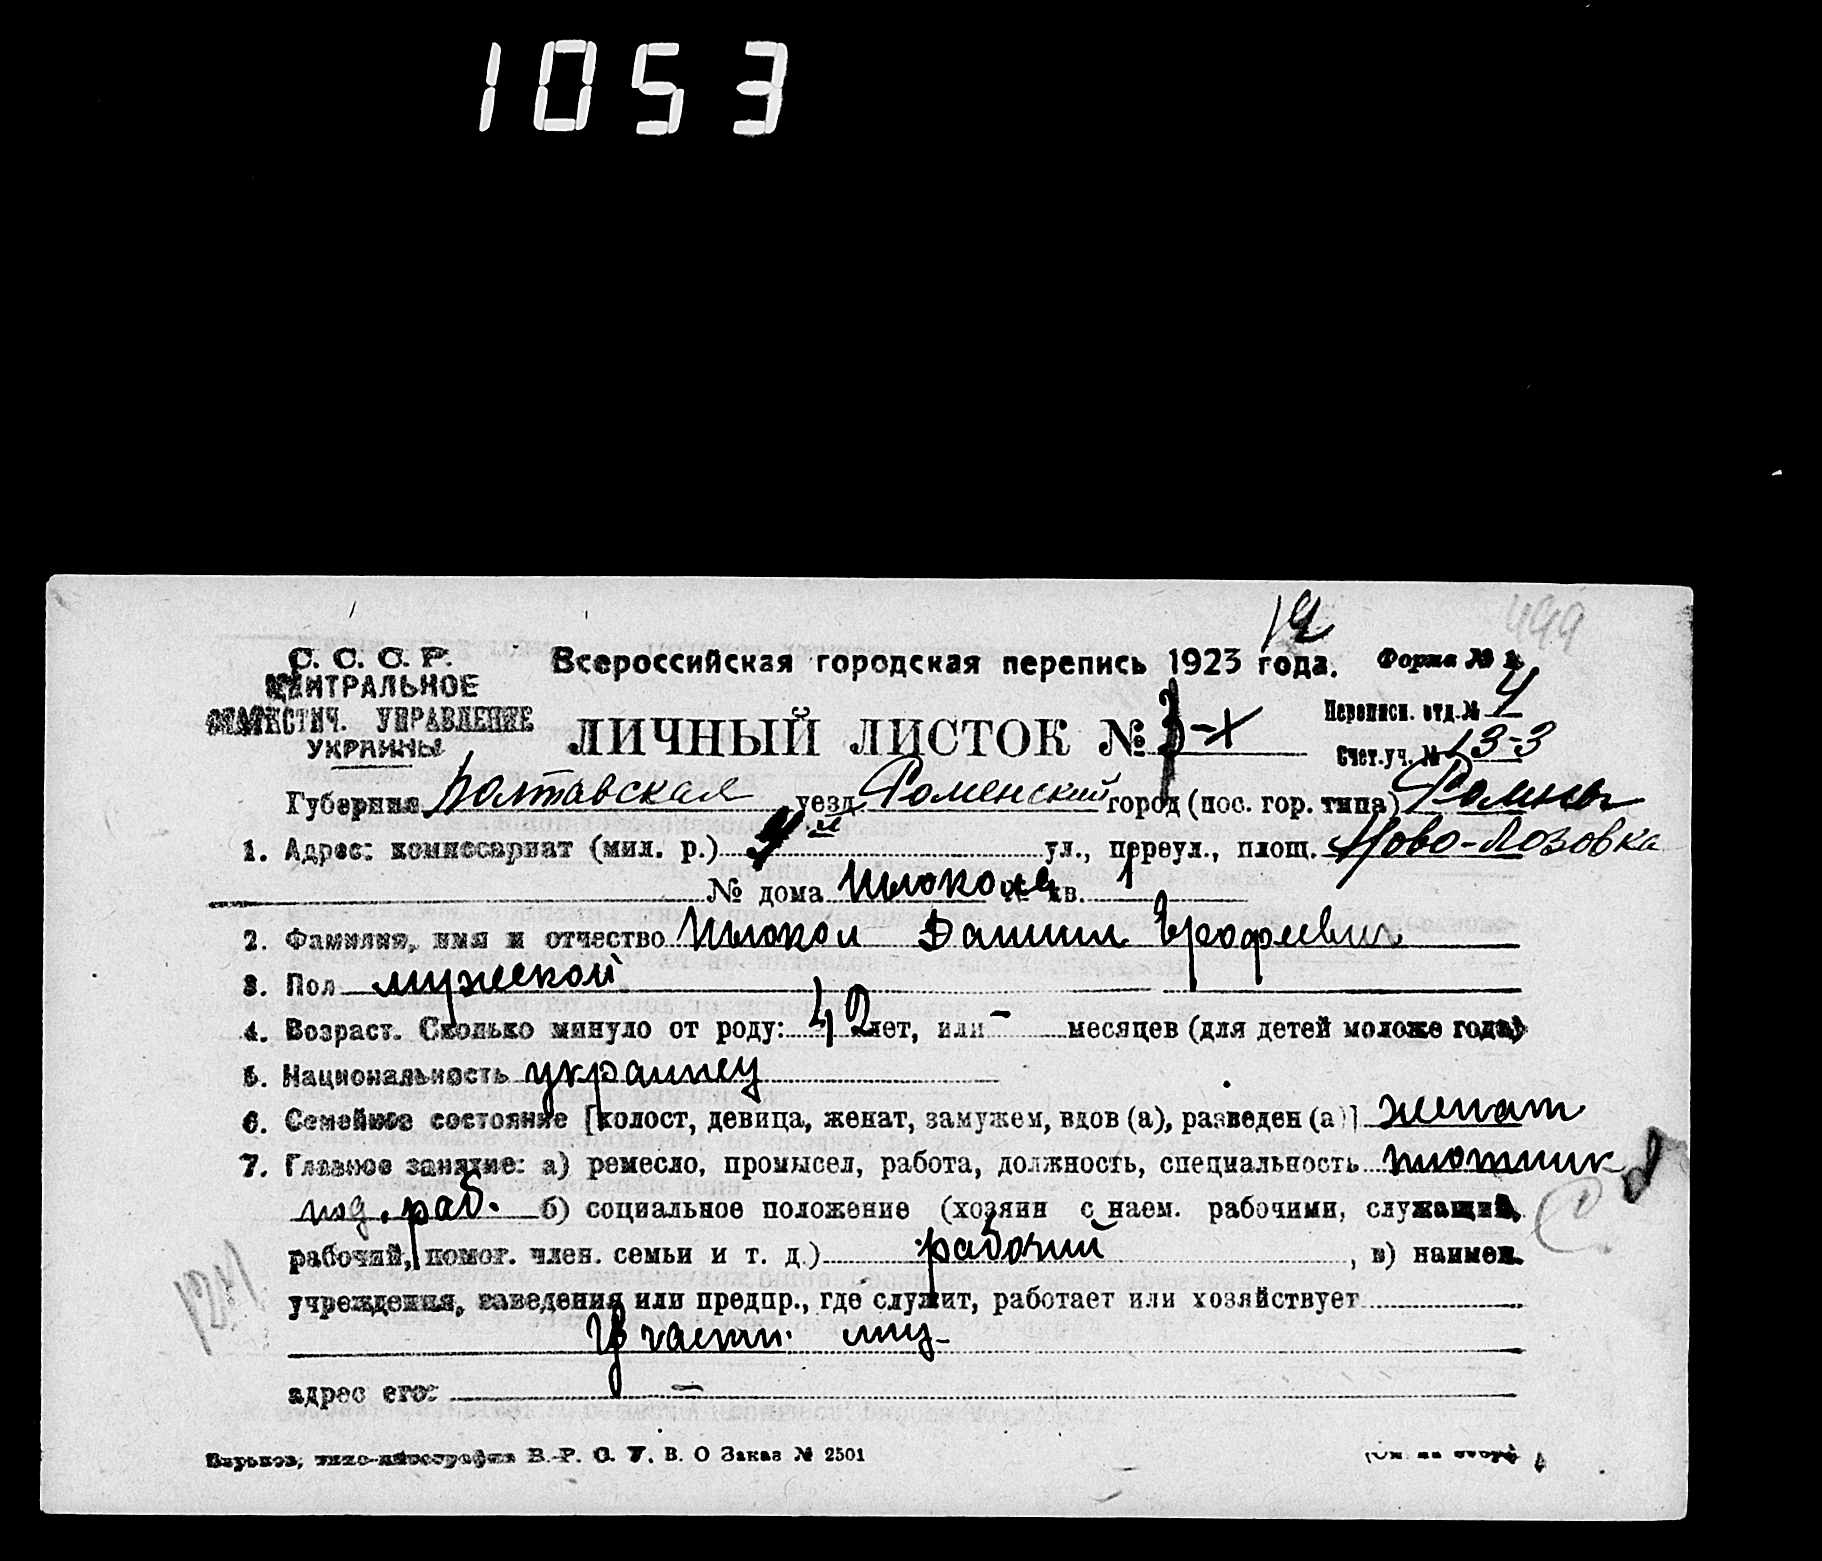 1053
499
12
С. С. С. Р.
ЦЕНТРАЛЬНОЕ
СТАТИСТИЧ. УПРАВЛЕНИЕ
УКРАИНЫ
Всероссийская городская перепись 1923 года.
Форма № 1.
ЛИЧНЫЙ ЛИСТОК №
Переписн. отд. № 4
Счет. уч. № 13-3
Губерния Полтавская уезд Роменский город (пос. гор. типа) Ромны
1. Адрес: комиссариат (мил. р.) ул., переул., площ. Ново-Лозовка
№ дома № кв. 1
2. Фамилия, имя и отчество Шлокол Даниил Ерофеевич
3. Пол мужской
4. Возраст. Сколько минуло от роду: 42 лет, или - месяцев (для детей моложе года)
5. Национальность украинец
6. Семейное состояние [холост, девица, женат, замужем, вдов (а), разведен (а)] женат
7. Главное занятие: а) ремесло, промысел, работа, должность, специальность плотник
под. раб. б) социальное положение (хозяин с наем. рабочими, служащий,
рабочий, помог. член. семьи и т. д.) рабочий, в) наимен.
учреждения, заведения или предпр., где служит, работает или хозяйствует
У частн. лиц-
адрес его: —
Харьков, типо-литография В.-Р. С. У. В. О Заказ № 2501
(См. на обор.)